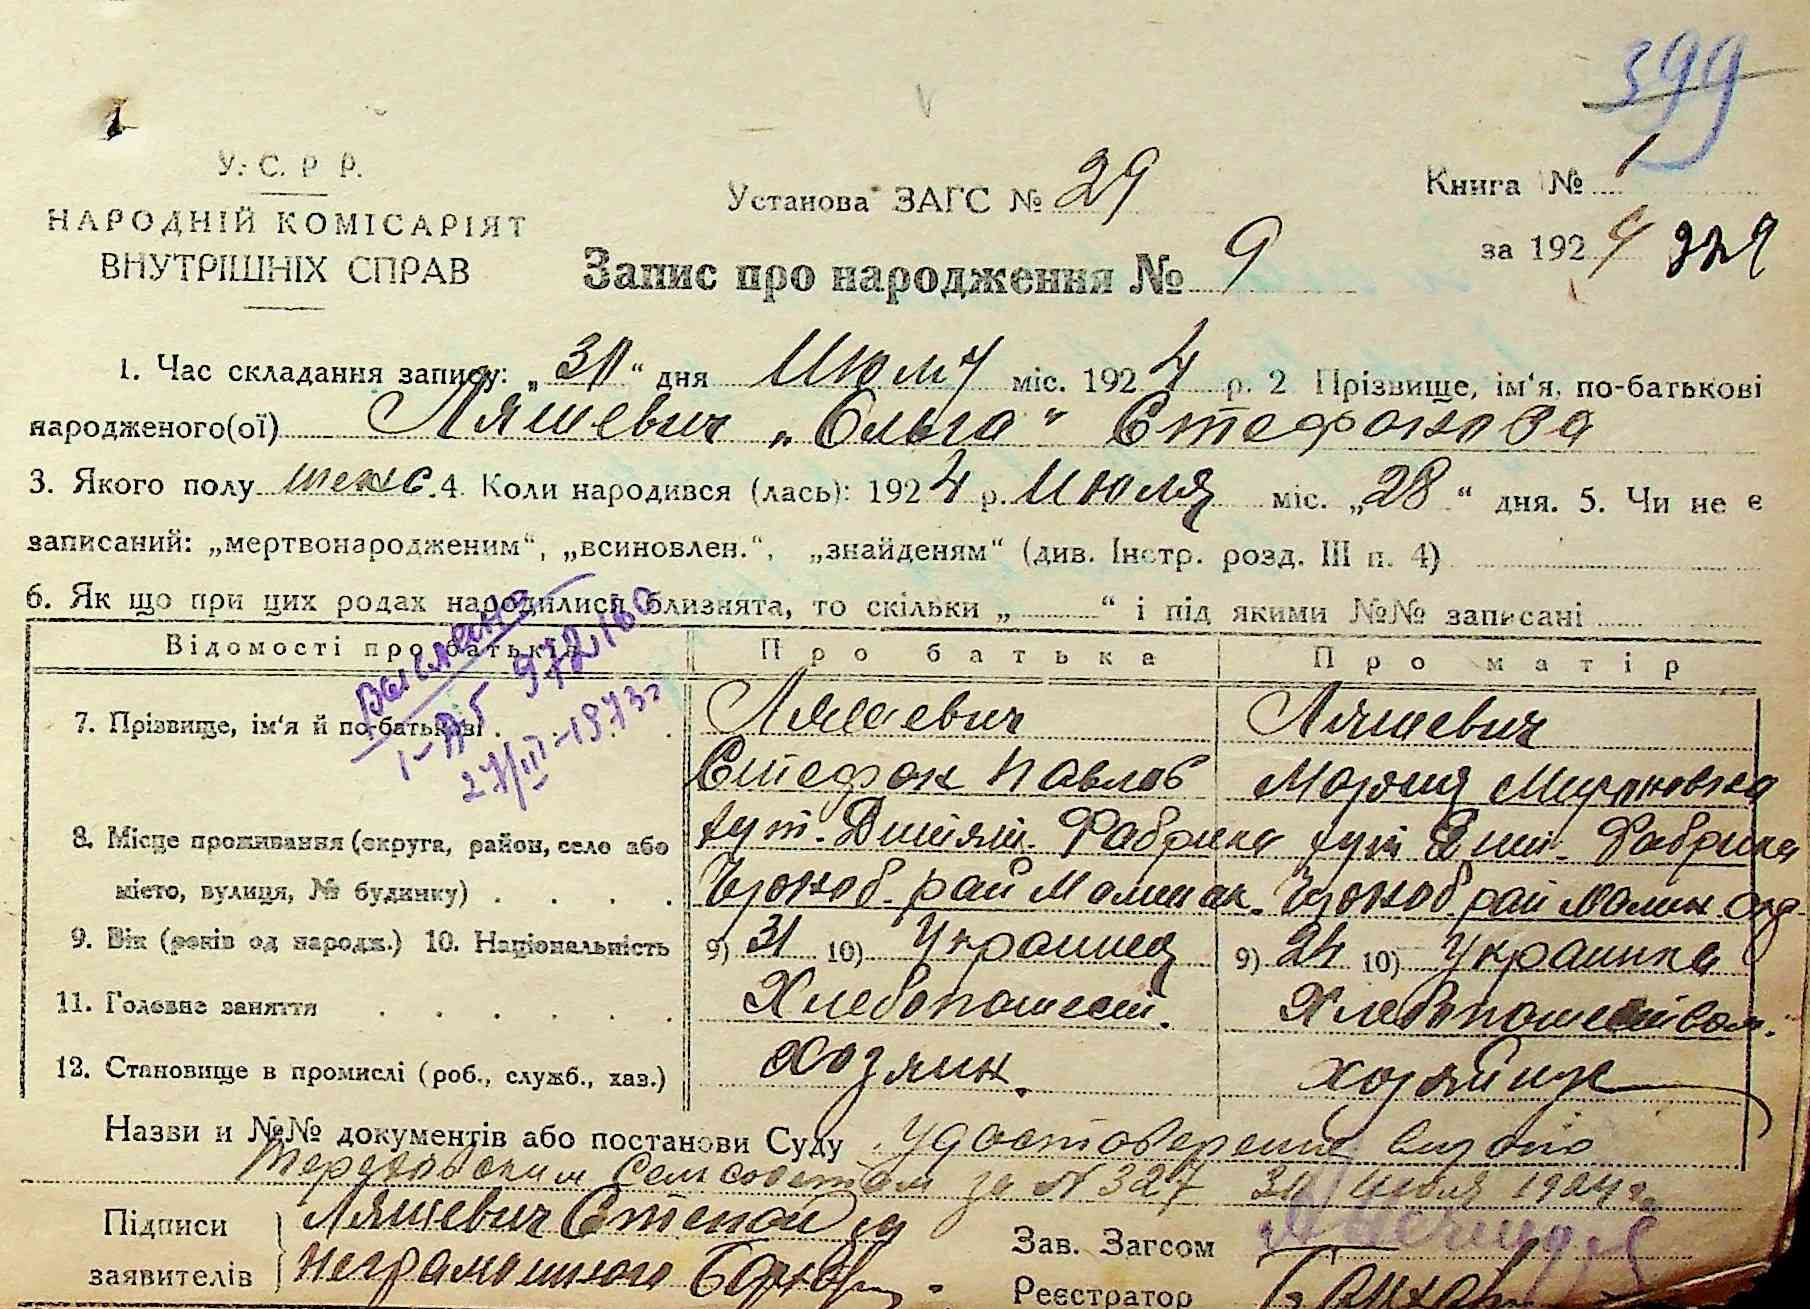 399
У. С. Р. Р.
НАРОДНІЙ КОМІСАРІЯТ
ВНУТРІШНІХ СПРАВ
Установа ЗАГС № 29
Книга № 1
за 1924 329
Запис про народження № 9
1. Час складання запису: „31“ дня Июля міс. 1924 р. 2 Прізвище, ім‘я, по-батькові
народженого(ої) Ляшевич „Ольга“ Стефанова
3. Якого полу женс. 4. Коли народився (лась): 1924 р. Июля міс. „28“ дня. 5. Чи не є
записаний: „мертвонародженим“, „всиновлен.“, „знайденям“ (див. Інстр. розд. III п. 4)
6. Як що при цих родах народилися близнята, то скільки „ “ і під якими №№ записані
Відомості про батьків Про батька Про матір
7. Прізвище, ім‘я й по-батькові Ляшевич Ляшевич
Стефан Павлов Мария
8. Місце проживання (округа, район, село або хут. Дитят. Фабрика хут Дит. Фабрика
місто, вулиця, № будинку) Чорноб. рай Малинск. Чорноб. рай Малин Окр
9. Вік (років од народж.) 10. Національність 9) 31 10) Украинец 9) 24 10) Украинка
11. Головне заняття Хлебопашест. Хлебопашество.
12. Становище в промислі (роб., служб., хаз.) хозяин. хозяйка
выслано
І-ДБ 972160
27/III-1973 г
Назви и №№ документів або постанови Суду Удостоверение выдано
Тереховским Сельсоветом за №327 31 июля 1924 г.
Підписи Ляшевич Степан за
заявителів неграмотного
Зав. Загсом
Реєстратор